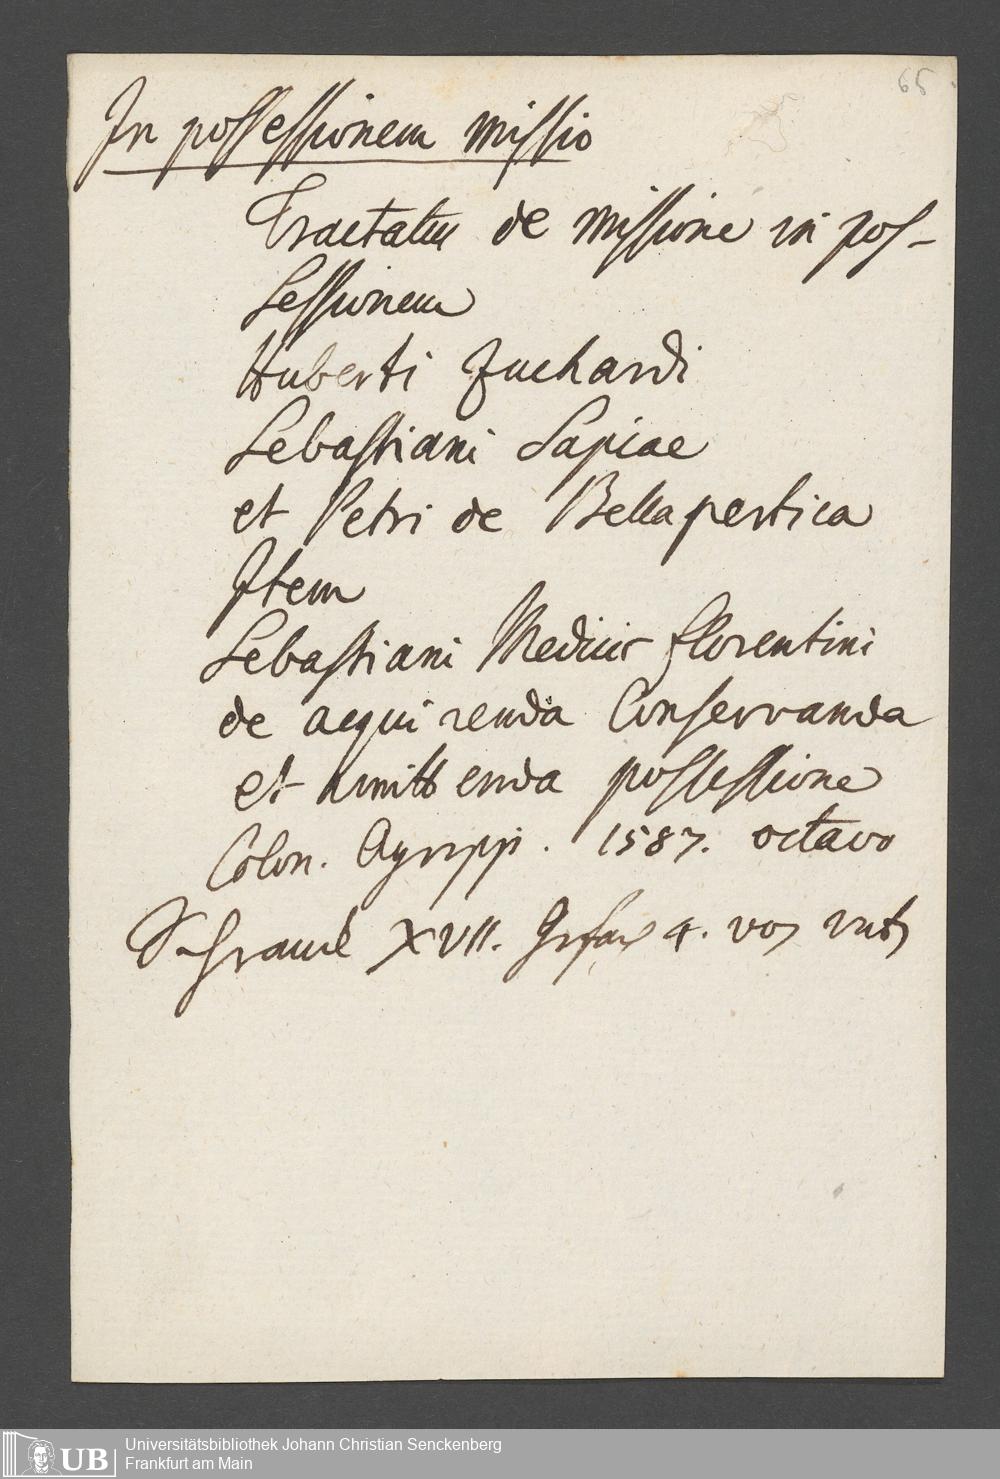 65
In possessionem missio
Tractatus de missione in pos-
sessionem
Huberti Zuchardi
Sebastiani Sapiae
et Petri de Bellapertica
Item
Sebastiani Medicis florentini
de acquirenda Conservanda
et amittenda possessione
Colon. Agripp. 1587. octavo
Schranck XVII. Gefach 4. von unten
UB
Universitätsbibliothek Johann Christian Senckenberg
Frankfurt am Main